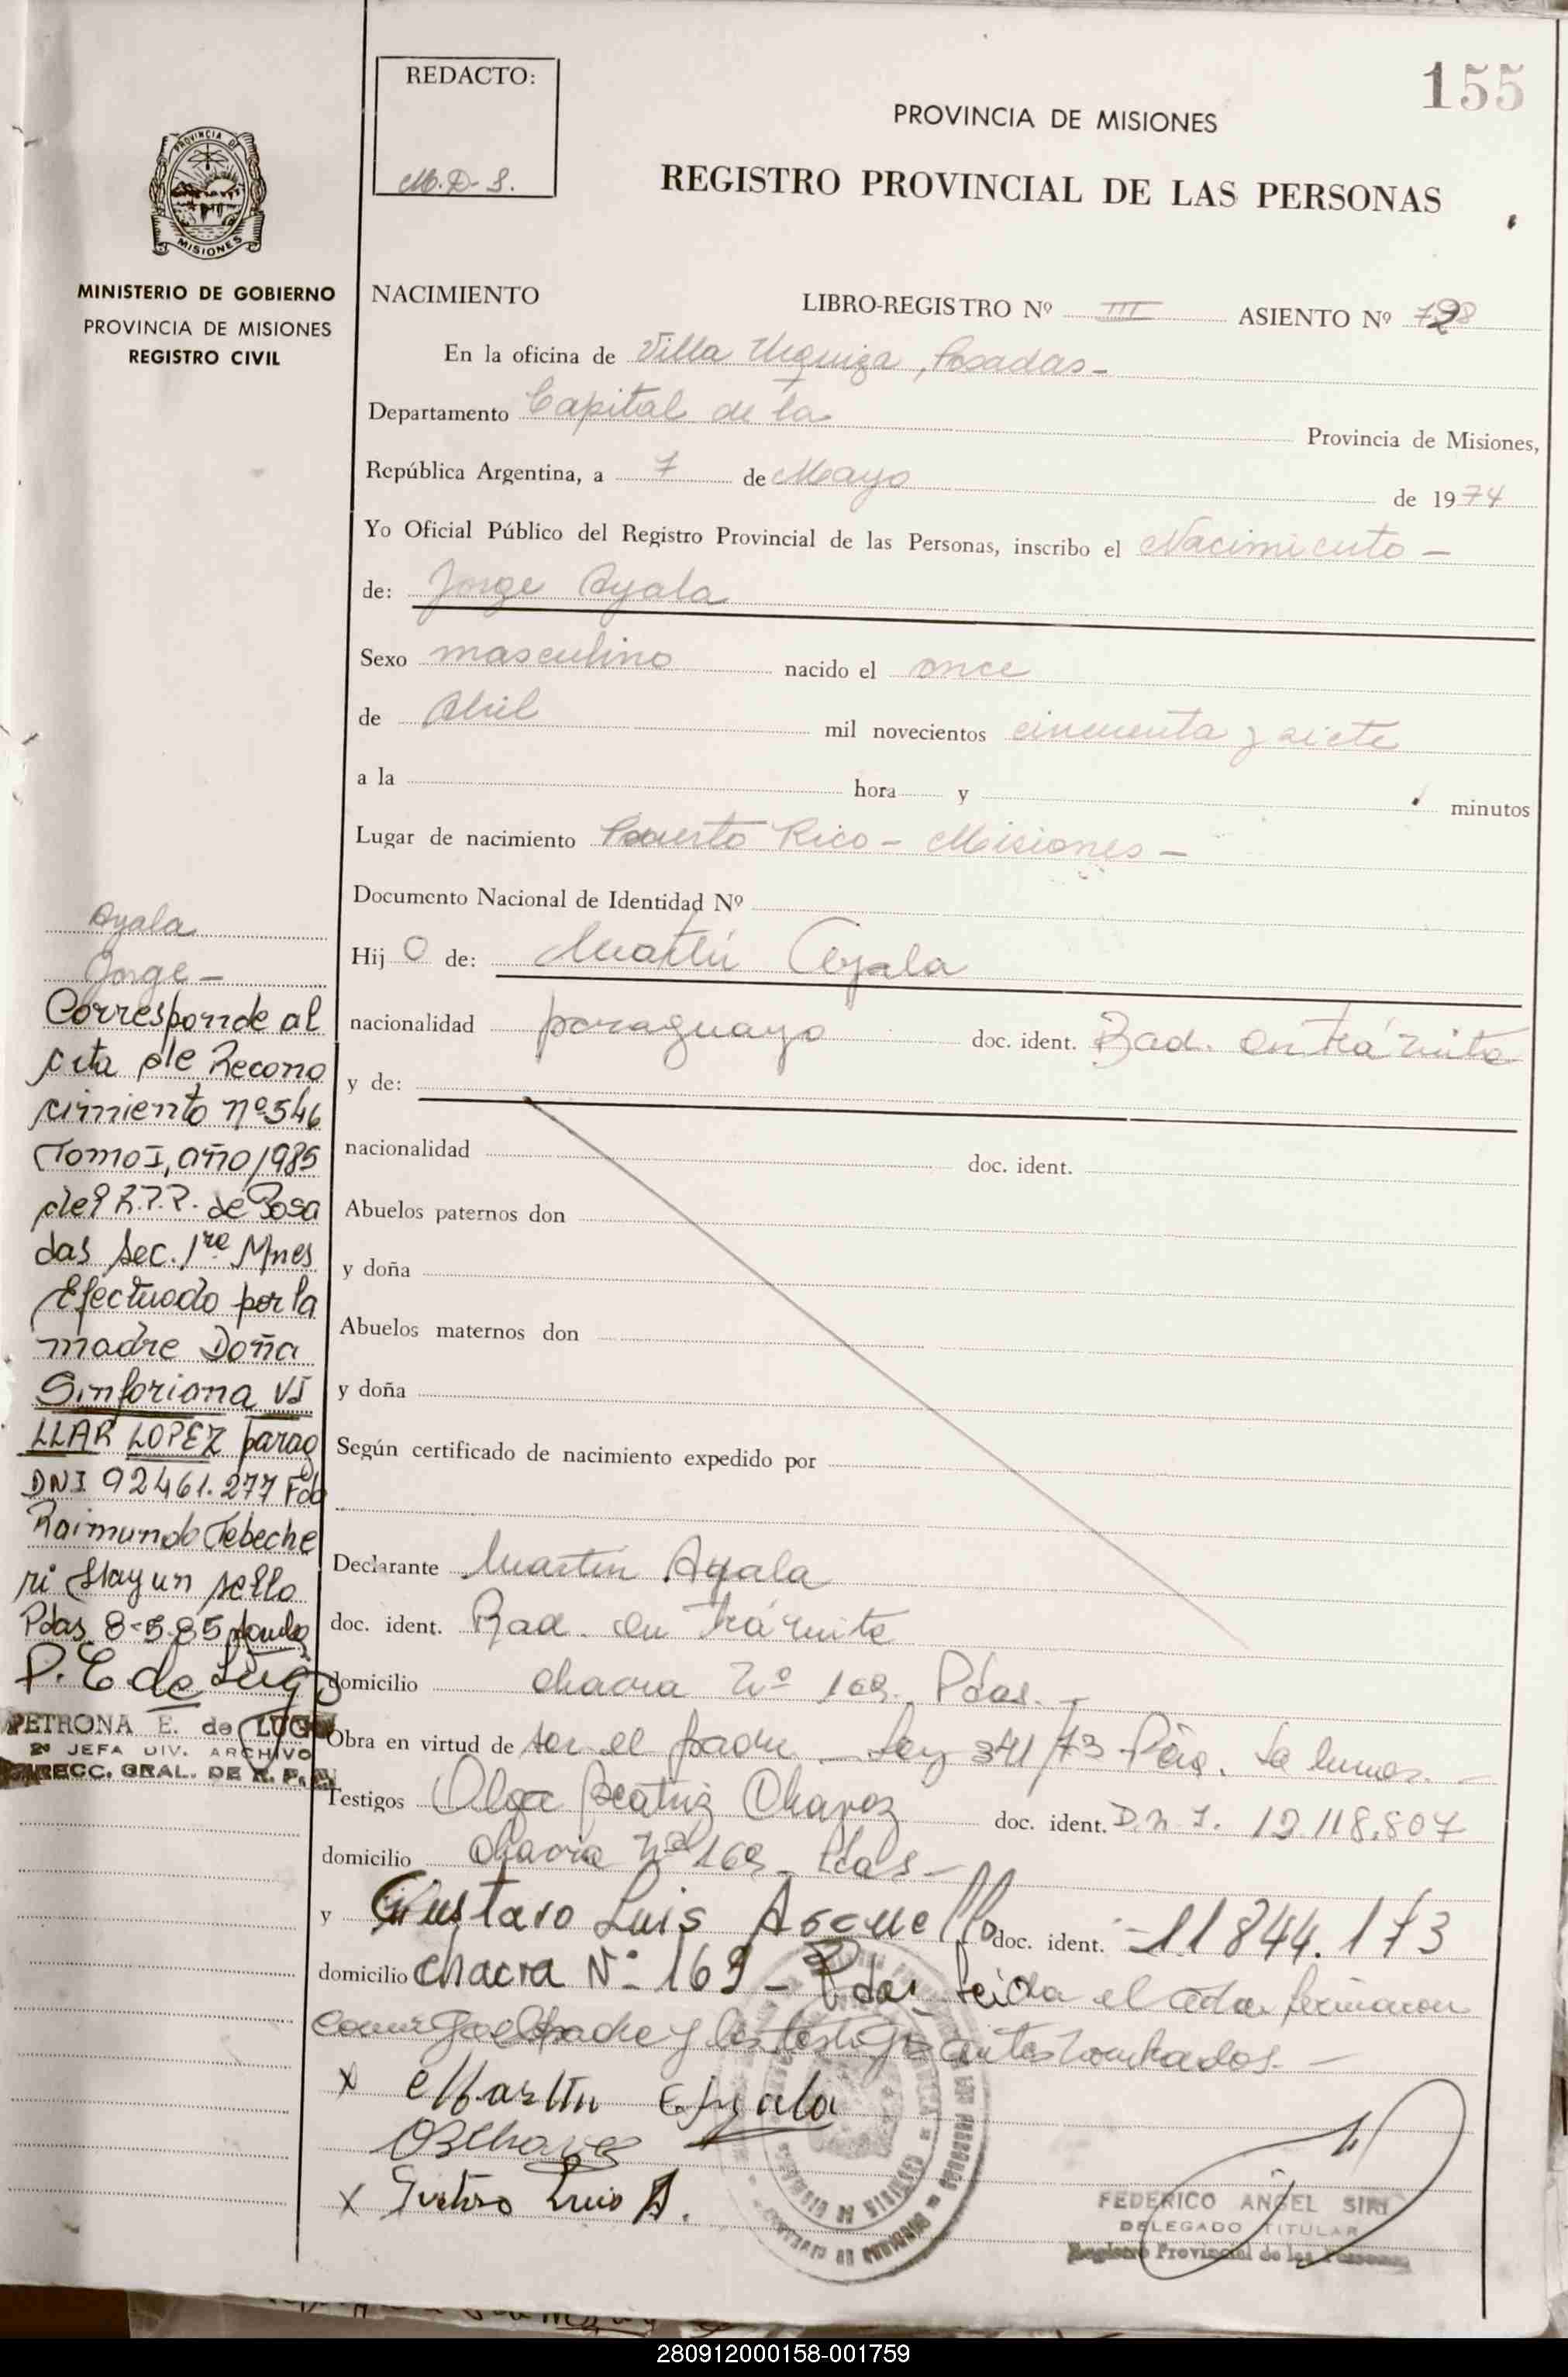 155
REDACTO:
M.D.S.
PROVINCIA DE MISIONES
REGISTRO PROVINCIAL DE LAS PERSONAS
PROVINCIA DE
MISIONES
MINISTERIO DE GOBIERNO
PROVINCIA DE MISIONES
REGISTRO CIVIL
NACIMIENTO LIBRO-REGISTRO Nº III ASIENTO Nº
En la oficina de Villa Urquiza, Posadas-
Departamento Capital de la Provincia de Misiones,
República Argentina, a 7 de Mayo de 1974
Yo Oficial Público del Registro Provincial de las Personas, inscribo el Nacimiento -
de: Jorge Ayala
Sexo masculino nacido el once
de Abril mil novecientos cincuenta y siete
a la hora y minutos
Lugar de nacimiento Puerto Rico - Misiones -
Documento Nacional de Identidad Nº
Hij o de: Martín Ayala
nacionalidad paraguayo doc. ident. Rad. en trámite
y de:
nacionalidad doc. ident.
Abuelos paternos don
y doña
Abuelos maternos don
y doña
Según certificado de nacimiento expedido por
Declarante Martín Ayala
doc. ident. Rad. en trámite
domicilio chacra Nº 169. Pdas. -
Obra en virtud de ser el padre - Ley 341/73
Testigos Olga Beatriz Chavez doc. ident. D.N.I. 12.118.807
domicilio chacra Nº 169 - Pdas -
y Gustavo Luis doc. ident. - 11844.173
domicilio chacra Nº 169 - Pdas leida el acta firmaron
conmigo el padre y los testigos antes nombrados. -
x Martin Ayala
OBChavez
x Gustavo Luis A.
FEDERICO ANGEL SIRI
DELEGADO TITULAR
Registro Provincial de las Personas
Ayala
Jorge -
Corresponde al
acta de Recono
cimiento nº 546
Tomo I, año 1985
del R.P.P. de Posa
das sec. 1re Mnes
Efectuado por la
madre Doña
Sinforiana VI
LLAR LOPEZ parag
DNI 92461.277 Fdo
Raimundo Tebeche
ri Hay un sello
Pdas 8-5-85
P. E de Lugo
PETRONA E. de LUGO
2ª JEFA DIV. ARCHIVO
DIRECC. GRAL. DE R. P. P.
280912000158-001759